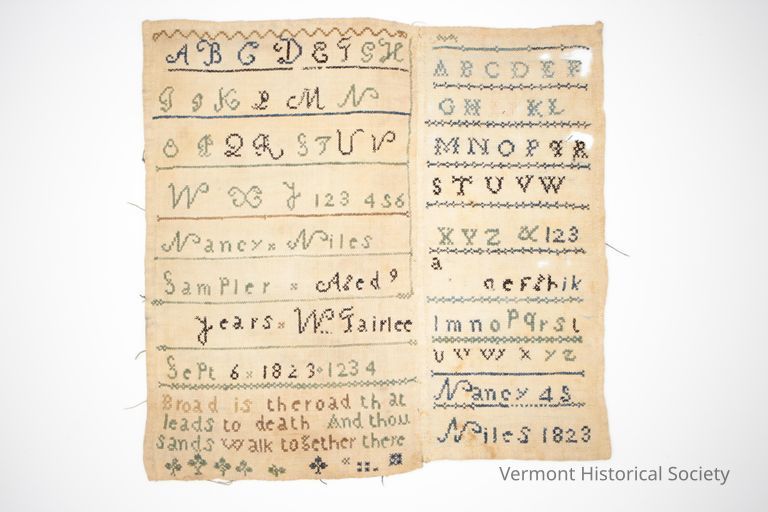 A B C D E F G H
I J K L M N
O P Q R S T U V
W X Y 1 2 3 4 5 6
Nancy x Niles
Sampler x Aged 9
years x W Fairlee
Sept 6 x 1823 x 1234
Broad is theroad that
leads to death And thou
sands walk together there
A B C D E F
G H K L
M N O P Q R
S T U V W
X Y Z & 1 2 3
a
a e f g h i k
l m n o p q r s t
u v w x y z
Nancy 4 5
Niles 1823
Vermont Historical Society